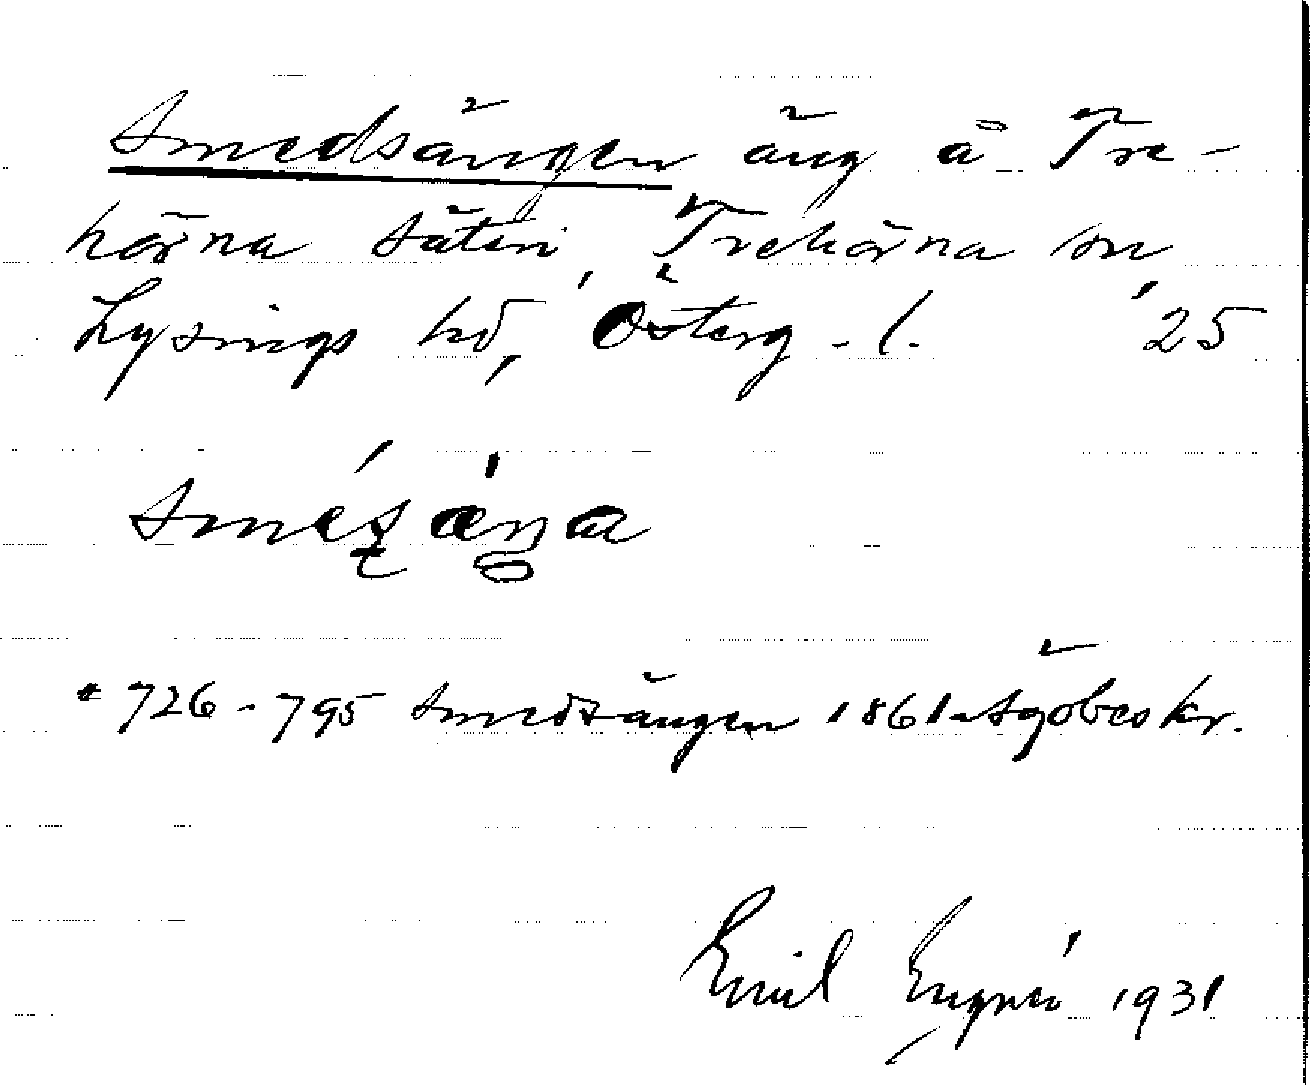 Smedsängen äng å Tre-
hörna säteri, Trehörna sn
Lysings hd, Österg. l. 25
* 726-795 Smedsängen 1861 Ägobeskr.
Emil 1931